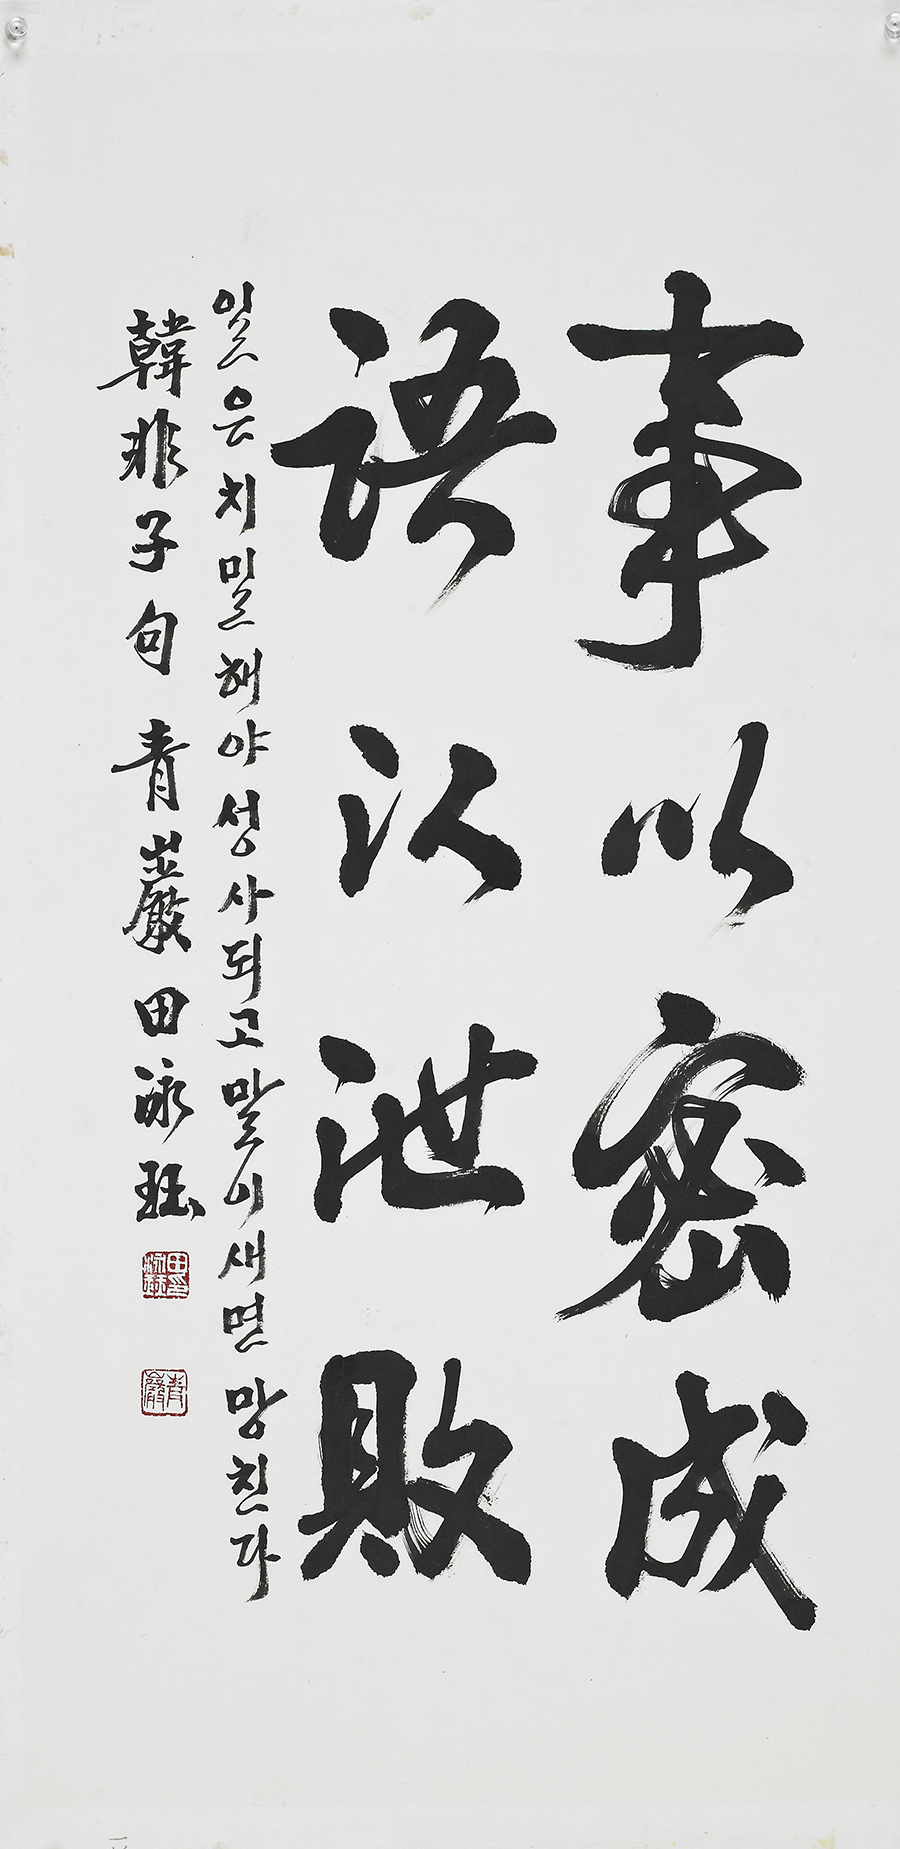 事以密成
語以泄敗
일은 치밀해야 성사되고 말이 새면 망친다
韓非子句 青巖 田泳珏
青巖